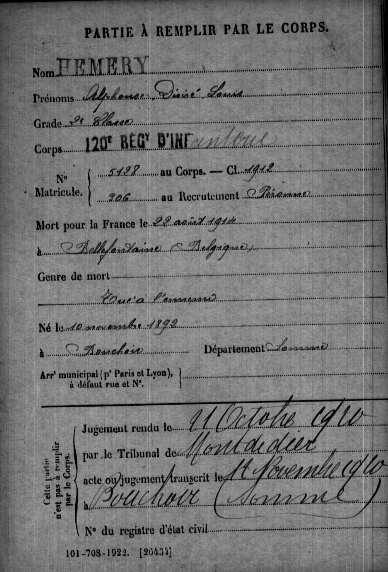 PARTIE À REMPLIR PAR LE CORPS.
Nom PEMERY
Prénoms Alphonse, Désiré Louis
Grade 2e Classe
Corps 120e RÉGt D'INFanterie
No Matricule. { 5128 au Corps. — Cl. 1912
206 au Recrutement Péronne
Mort pour la France le 22 août 1914
à Bellefontaine (Belgique)
Genre de mort
Tué à l'ennemi
Né le 10 novembre 1892
à Bouchoir Département Somme
Arrt municipal (pr Paris et Lyon), à défaut rue et No. }
Cette partie n'est pas à remplir par le Corps.
Jugement rendu le 21 Octobre 1920
par le Tribunal de Montdidier
acte ou jugement transcrit le 12 Novembre 1920
à Bouchoir (Somme)
No du registre d'état civil
101-708-1922. [26434]